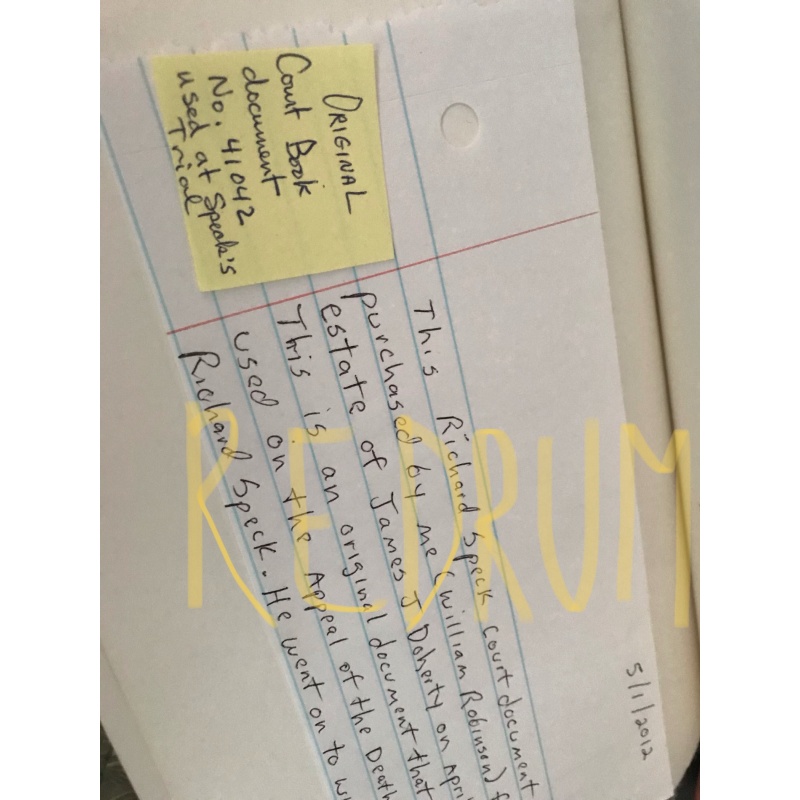 5/1/2012
This Richard Speck court document
purchased by me (William Robinson)
estate of James J Doherty on
This is an original document that
used on the Appeal of the Death
Richard Speck. He went on to
ORIGINAL
Court Book
document
No: 41042
used at Speck's
Trial
REDRUM